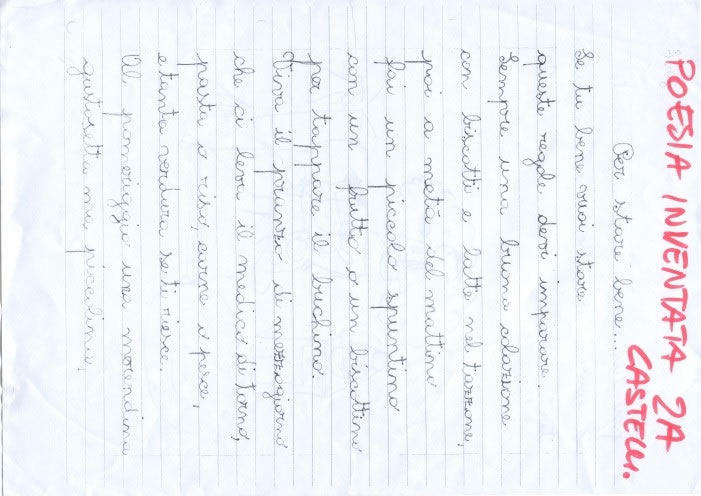 POESIA INVENTATA 2A
CASTELLI.
Per stare bene...
Se tu bene vuoi stare
queste regole devi imparare.
Sempre una buona colazione
con biscotti e latte nel tazzone,
poi a metà del mattino
fai un piccolo spuntino
con un frutto o un biscottino
per tappare il buchino.
Viva il pranzo di mezzogiorno
che ci leva il medico di torno,
pasta o riso, carne o pesce,
e tanta verdura se ti riesce.
Al pomeriggio una merendina
gustosetta ma piccolina,